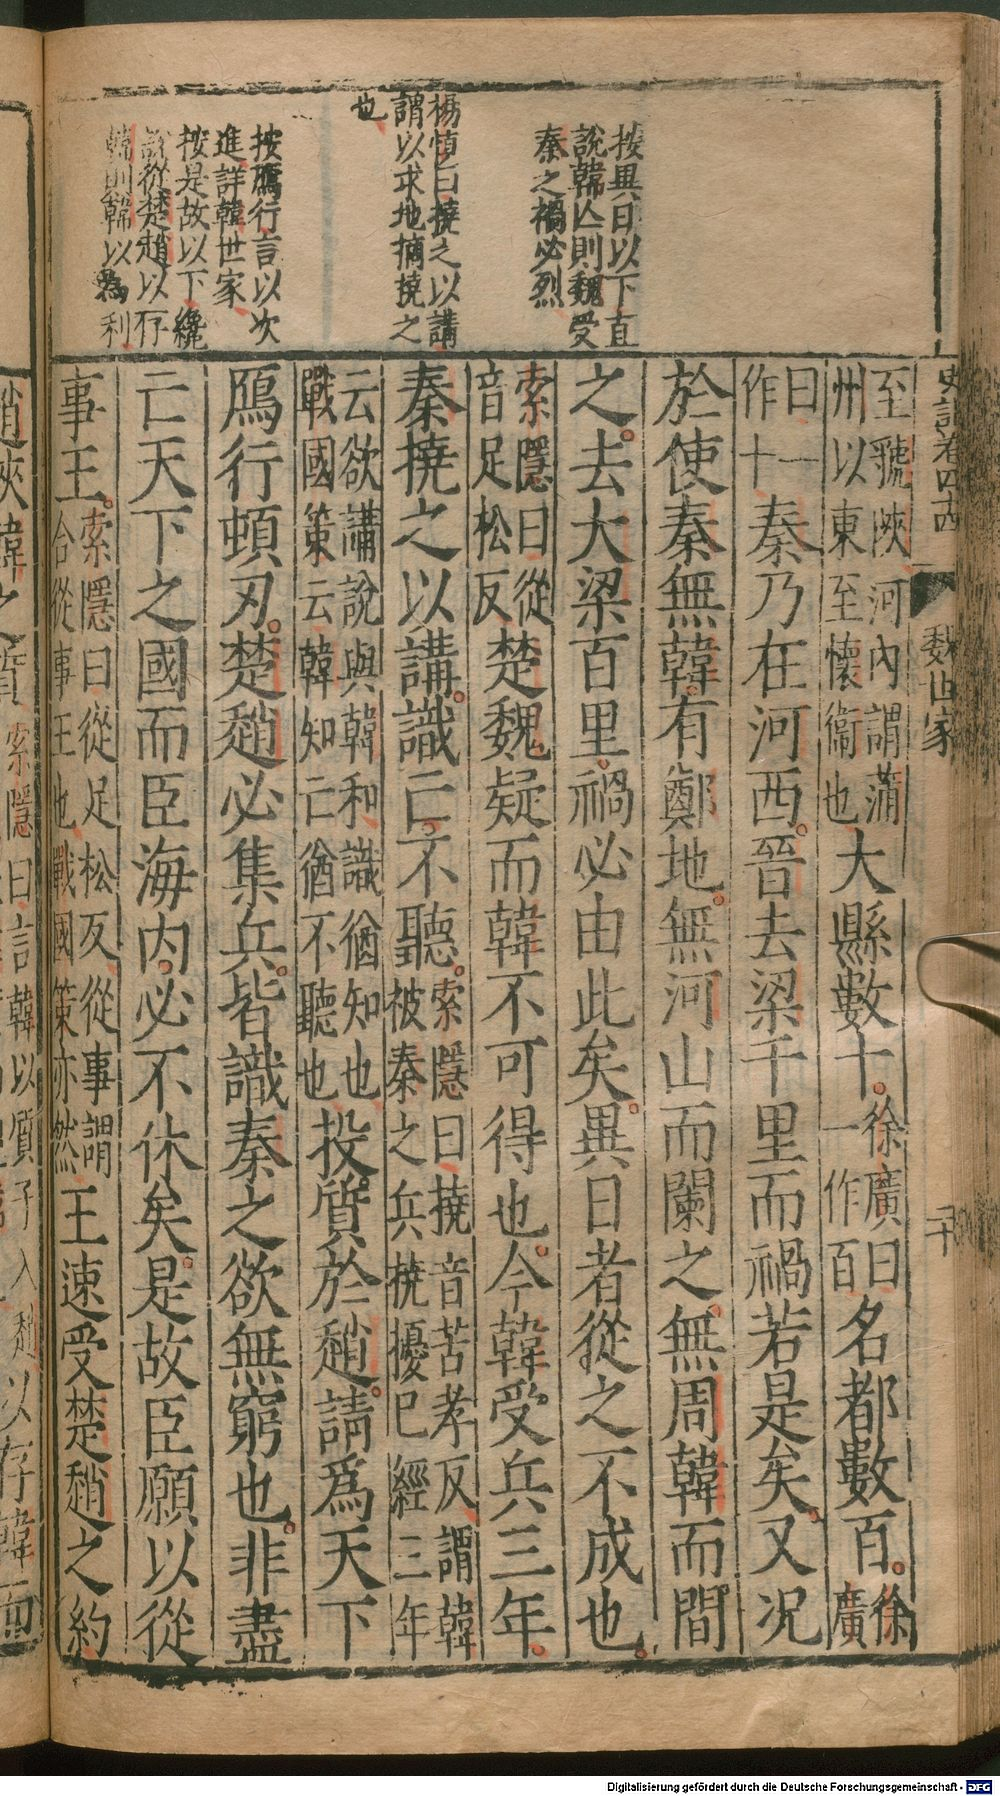 按異日以下直
說韓亾則魏受
秦之禍必烈
楊慎曰撓之以講
謂以求地摘撓之
也
按鴈行言以次
進詳韓世家
按是故以下纔
說從楚趙以存
韓則韓以爲利
史記卷四十四
魏世家
二十
至虢陝河內謂蒲
州以東至懷衞也
大縣數十
徐廣曰
一作百
名都數百
徐廣
曰一
作十
秦乃在河西晉去梁千里而禍若是矣又况
於使秦無韓有鄭地無河山而闌之無周韓而間
之去大梁百里禍必由此矣異日者從之不成也
索隱曰從
音足松反
楚魏疑而韓不可得也今韓受兵三年
秦撓之以講識亡不聽
索隱曰撓音苦孝反謂韓
被秦之兵撓擾已經三年
云欲講說與韓和識猶知也
戰國策云韓知亡猶不聽也
投質於趙請爲天下
鴈行頓刃楚趙必集兵皆識秦之欲無窮也非盡
亡天下之國而臣海內必不休矣是故臣願以從
事王
索隱曰從足松反從事謂
合從事王也戰國策亦然
王速受楚趙之約
趙挾韓之質
索隱曰言韓以質子入趙
以存韓而
Digitalisierung gefördert durch die Deutsche Forschungsgemeinschaft - DFG